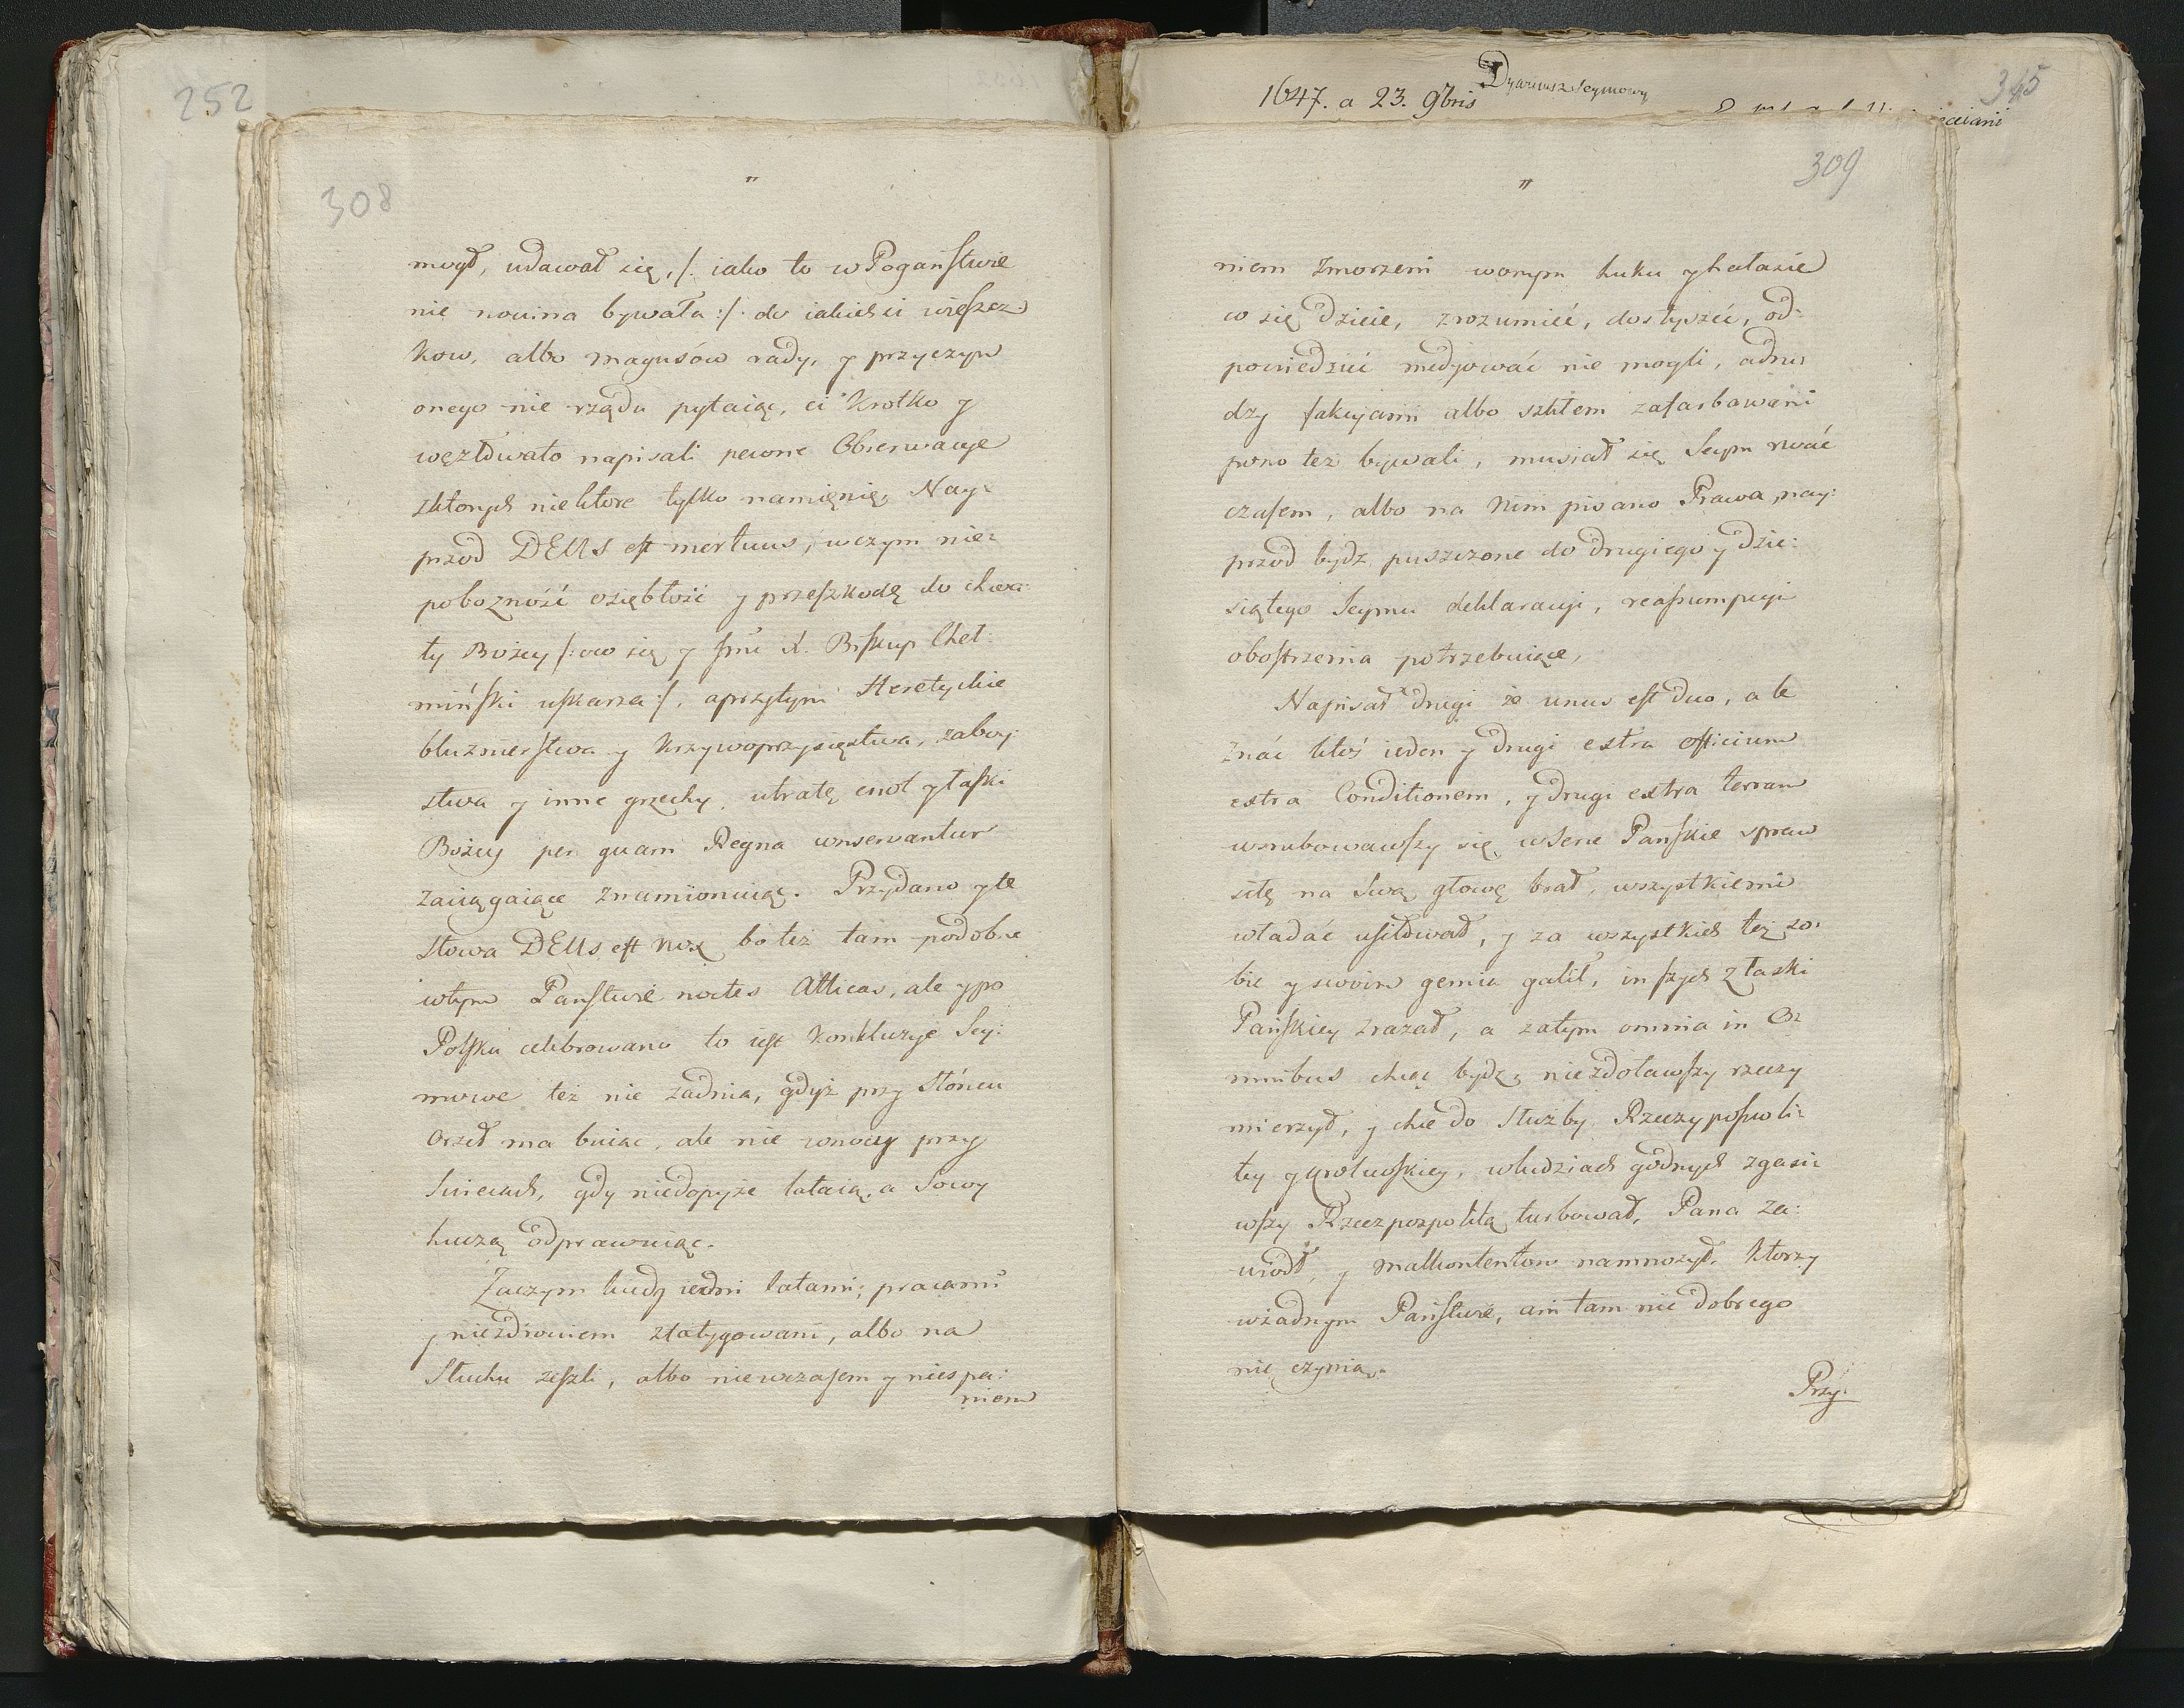 252
308
mogł, udawał się, /: iako to w Pogaństwie
nie nowina bywała :/ do iakichci wieszcz
kow, albo magusów rady, y przyczyn
onego nie rządu pytaiąc, ci krotko y
węzłowato napisali pewne Obserwacye
zktorych niektore tylko namięnię, Nay:
przod DEUS est mortuus, wczym nie:
pobozność oziębłość y przeszkodę do chwa:
ły Bożey /: oco się y Jmć X. Biskup Cheł:
miński uskarza :/, aprzytym Heretyckie
bluznierstwa y krzywoprzysięstwa, zaboy:
stwa y inne grzechy, utratę cnot y łaski
Bożey per quam Regna conservantur
zaciągaiące znamionuią. Przydano y te
słowa DEUS est nox bo też tam podobne
wtym Państwie noctes Atticas, ale y po
Polsku celebrowano to iest konkluzye Sey:
mowe też nie zadnia, gdyż przy Słóncu
Orzeł ma buiac, ale nie wnocy przy
Swiecach, gdy niedopyże lataią, a Sowy
huczą odprawuiąc.
Zaczym ludzi iedni latami, pracami
y niezdrowiem zfatygowani, albo na
Słuchu zeszli, albo niewczasem y niespa:
niem
1647. a 23. 9bris
Dyariusz Seymowy
345
309
niem zmorzeni wonym huku y hałasie
co się dzieie, zrozumieć, dosłyszeć, od:
powiedzieć medyować nie mogli, adru:
dzy fakcyami albo szkłem zafarbowani
pono też bywali, musiał się Seym rwać
czasem, albo na nim pisano Prawa, nay:
przod bydz puszczone do drugiego y dzie:
siątego Seymu deklaracyi, reassumpcyi
obostrzenia potrzebuiące,
Napisał drugi że unus est duo, a le
znać ktoś ieden y drugi extra officium
extra Conditionem, y drugi extra terram
wsrubowawszy się wserce Pańskie spraw
siłę na swą głowę brał, wszystkiemi
władać usiłował, y za wszystkich też so:
bie y swoim gemia galił, inszych z łaski
Pańskiey zrazał, a zatym omnia in O:
mnibus chcąc bydz, niezdoławszy rzeczy
mierzył, y chę do Służby Rzeczypospoli:
tey y Krolewskiey, wludziach godnych zgasi:
wszy Rzeczpospolitą turbował, Pana za:
wiodł, y malkontentow namnożył, ktorzy
wżadnym Państwie, ani tam nic dobrego
nie czynią.
Przy: